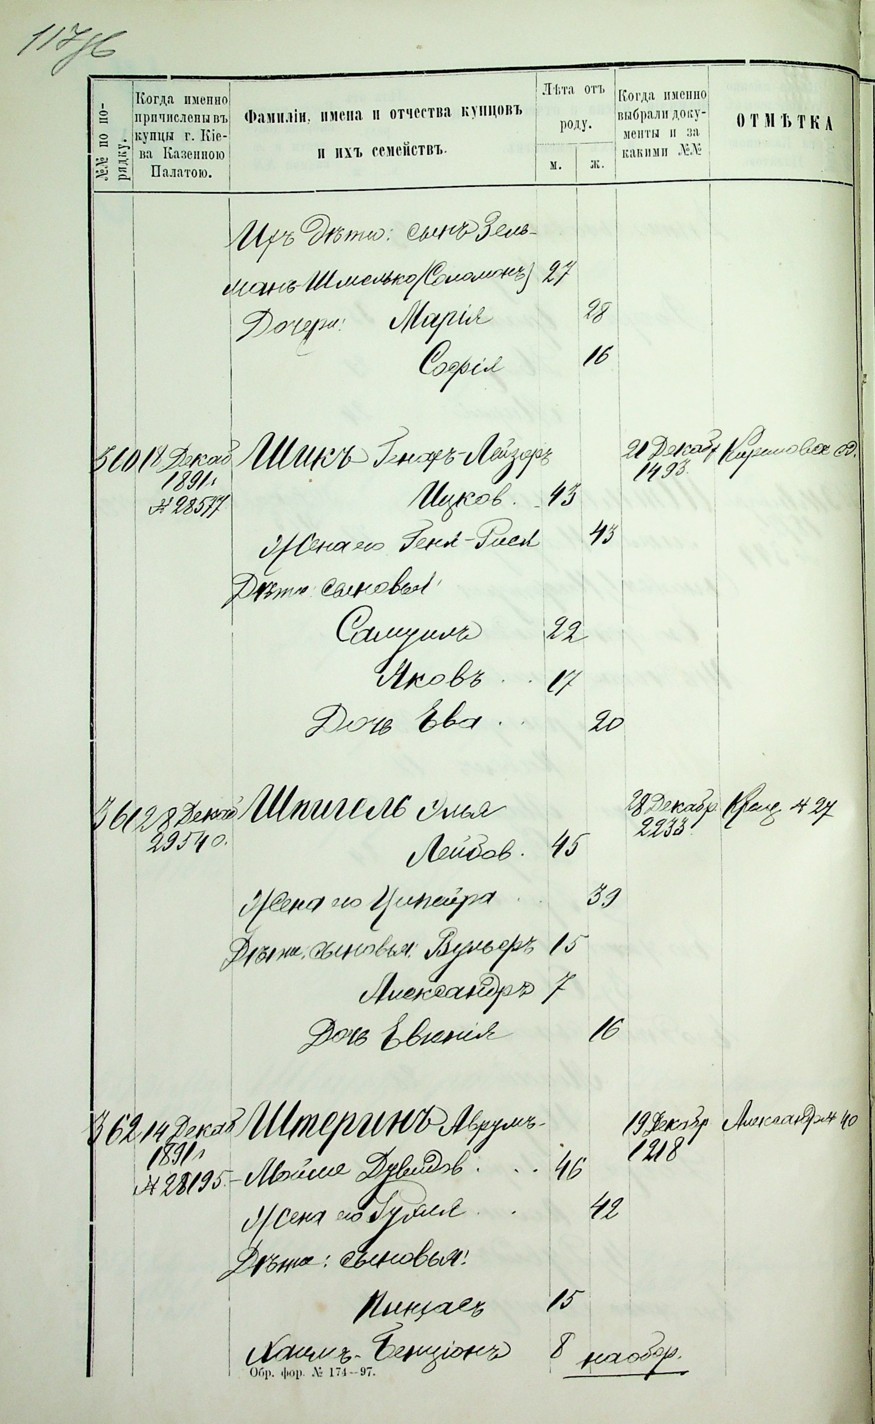 №№ по порядку.
Когда именно
причислены въ
купцы г. Кіе-
ва Казенною
Палатою.
Фамиліи, имена и отчества купцовъ
и ихъ семействъ.
Лѣта отъ
роду.
м. ж.
Когда именно
выбрали доку-
менты и за
какими №№
ОТМѢТКА
Ихъ дѣти: сынъ Зель-
манъ-Шмелько (Соломонъ) 27
Дочери: Марія 28
Софія 16
360 18 Декаб Шикъ Генохъ-Лейзеръ 21 Декабр
1891 г. 1493.
№ 28577 Ицков. 43
Жена его Геня-Рися 43
Дѣти: сыновья:
Самуилъ 22
Яковъ 17
Дочь Ева 20
361 28 Декаб Шпигель Илья 28 Декабр. Крещ. № 27
29540. 2233
Лейбов. 45
Жена его Ципойра 39
Дѣти: сыновья: Вульфъ 15
Александръ 7
Дочь Евгенія 16
362 14 Декаб Штеринъ Аврумъ- 19 Декабр Александр № 40
1891 г. 1218
№ 28195. Мойше Дувидов. 46
Жена его 42
Дѣти: сыновья:
Пинхасъ 15
Хаимъ-Бенціонъ 8 на обор.
Обр. фор. № 174—97.